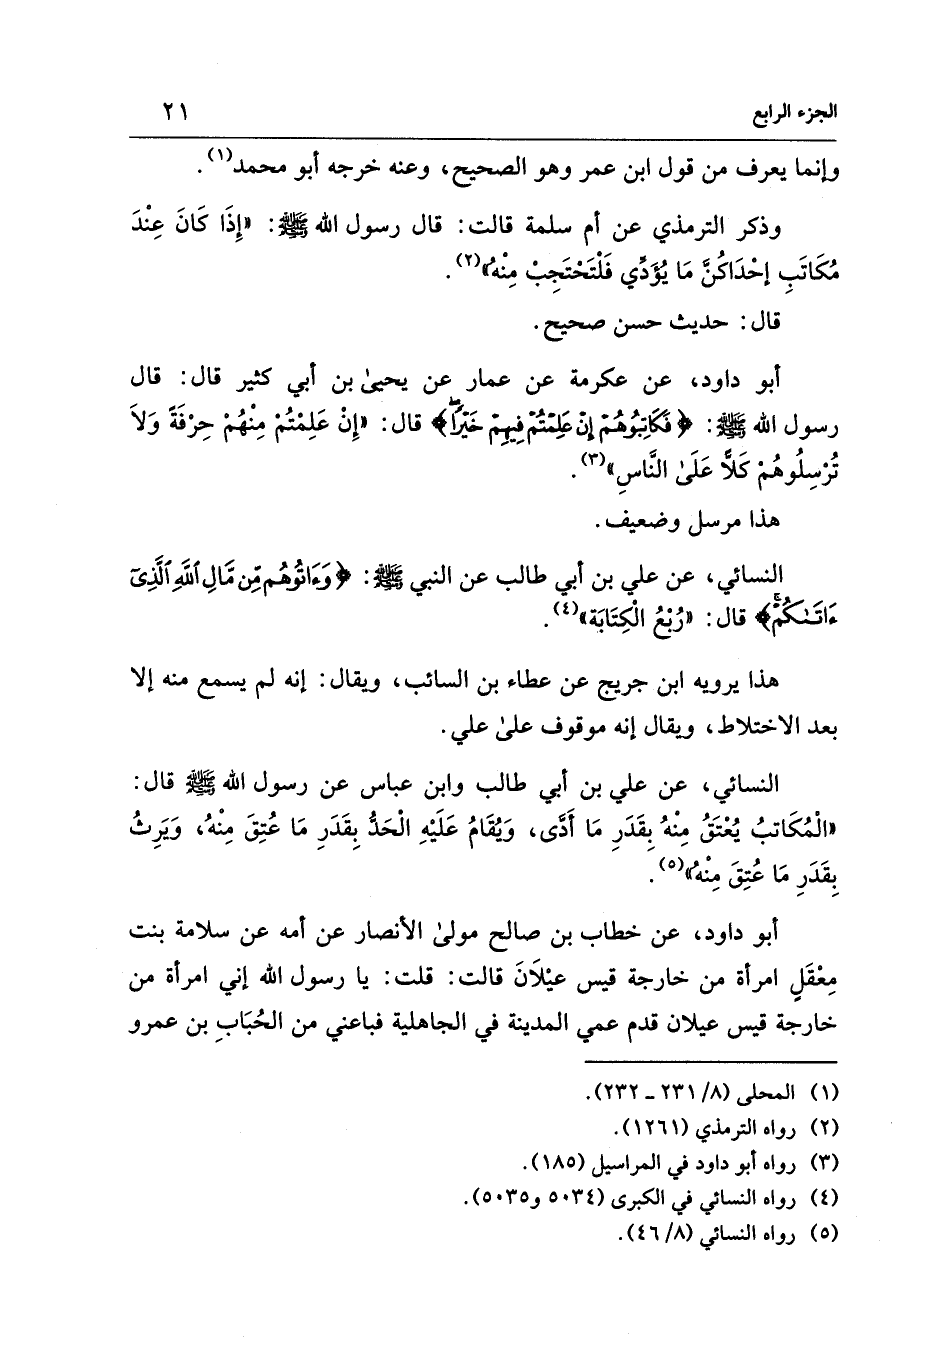 الجزء الرابع ٢١
وإنما يعرف من قول ابن عمر وهو الصحيح، وعنه خرجه أبو محمد(١).
وذكر الترمذي عن أم سلمة قالت: قال رسول الله ﷺ: «إِذَا كَانَ عِنْدَ
مُكَاتَبِ إِحْدَاكُنَّ مَا يُؤَدِّي فَلْتَحْتَجِبْ مِنْهُ»(٢).
قال: حديث حسن صحيح.
أبو داود، عن عكرمة عن عمار عن يحيىٰ بن أبي كثير قال: قال
رسول الله ﷺ: ﴿فَكَاتِبُوهُمْ إِنْ عَلِمْتُمْ فِيهِمْ خَيْرًا﴾ قال: «إِنْ عَلِمْتُمْ مِنْهُمْ حِرْفَةً وَلاَ
تُرْسِلُوهُمْ كَلاًّ عَلَىٰ النَّاسِ»(٣).
هذا مرسل وضعيف.
النسائي، عن علي بن أبي طالب عن النبي ﷺ: ﴿وَءَاتُوهُم مِّن مَّالِ ٱللَّهِ ٱلَّذِىٓ
ءَاتَىٰكُمْ﴾ قال: «رُبْعُ الْكِتَابَة»(٤).
هذا يرويه ابن جريج عن عطاء بن السائب، ويقال: إنه لم يسمع منه إلا
بعد الاختلاط، ويقال إنه موقوف علىٰ علي.
النسائي، عن علي بن أبي طالب وابن عباس عن رسول الله ﷺ قال:
«الْمُكَاتبُ يُعْتَقُ مِنْهُ بِقَدَرِ مَا أَدَّى، وَيُقَامُ عَلَيْهِ الْحَدُّ بِقَدَرِ مَا عُتِقَ مِنْهُ، وَيَرِثُ
بِقَدَرِ مَا عُتِقَ مِنْهُ»(٥).
أبو داود، عن خطاب بن صالح مولىٰ الأنصار عن أمه عن سلامة بنت
مِعْقَلٍ امرأة من خارجة قيس عيْلَانَ قالت: قلت: يا رسول الله إني امرأة من
خارجة قيس عيلان قدم عمي المدينة في الجاهلية فباعني من الحُبَابِ بن عمرو
(١) المحلى (٨/ ٢٣١ ـ ٢٣٢).
(٢) رواه الترمذي (١٢٦١).
(٣) رواه أبو داود في المراسيل (١٨٥).
(٤) رواه النسائي في الكبرى (٥٠٣٤ و٥٠٣٥).
(٥) رواه النسائي (٨/ ٤٦).